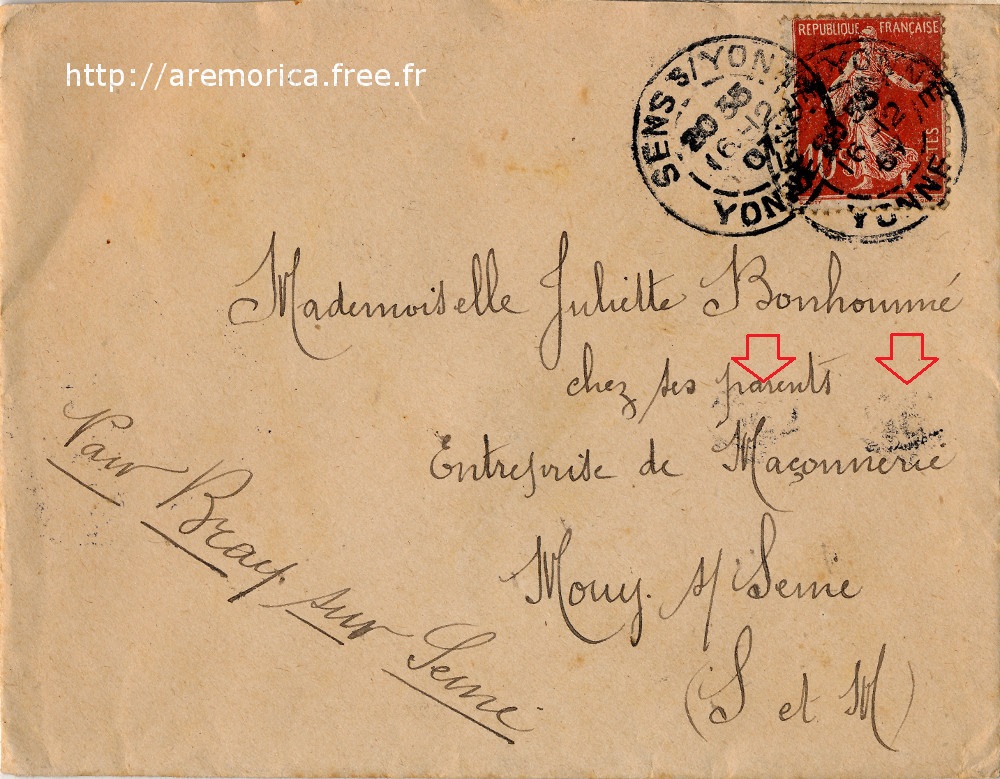 http://aremorica.free.fr
REPUBLIQUE FRANÇAISE
SENS S/ YONNE
20 35
16-12
07
YONNE
YONNE
20 35
16-12
07
YONNE
10
Mademoiselle Juliette Bonhommé
chez ses parents
Entreprise de Maçonnerie
Mouy s/ Seine
(S et M)
Par Bray sur Seine